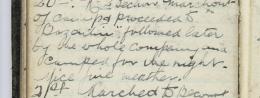 20th.
of camp & proceeded to
followed later
by the whole company, and
camped for the night.
Nice fine weather.
21st. Marched to